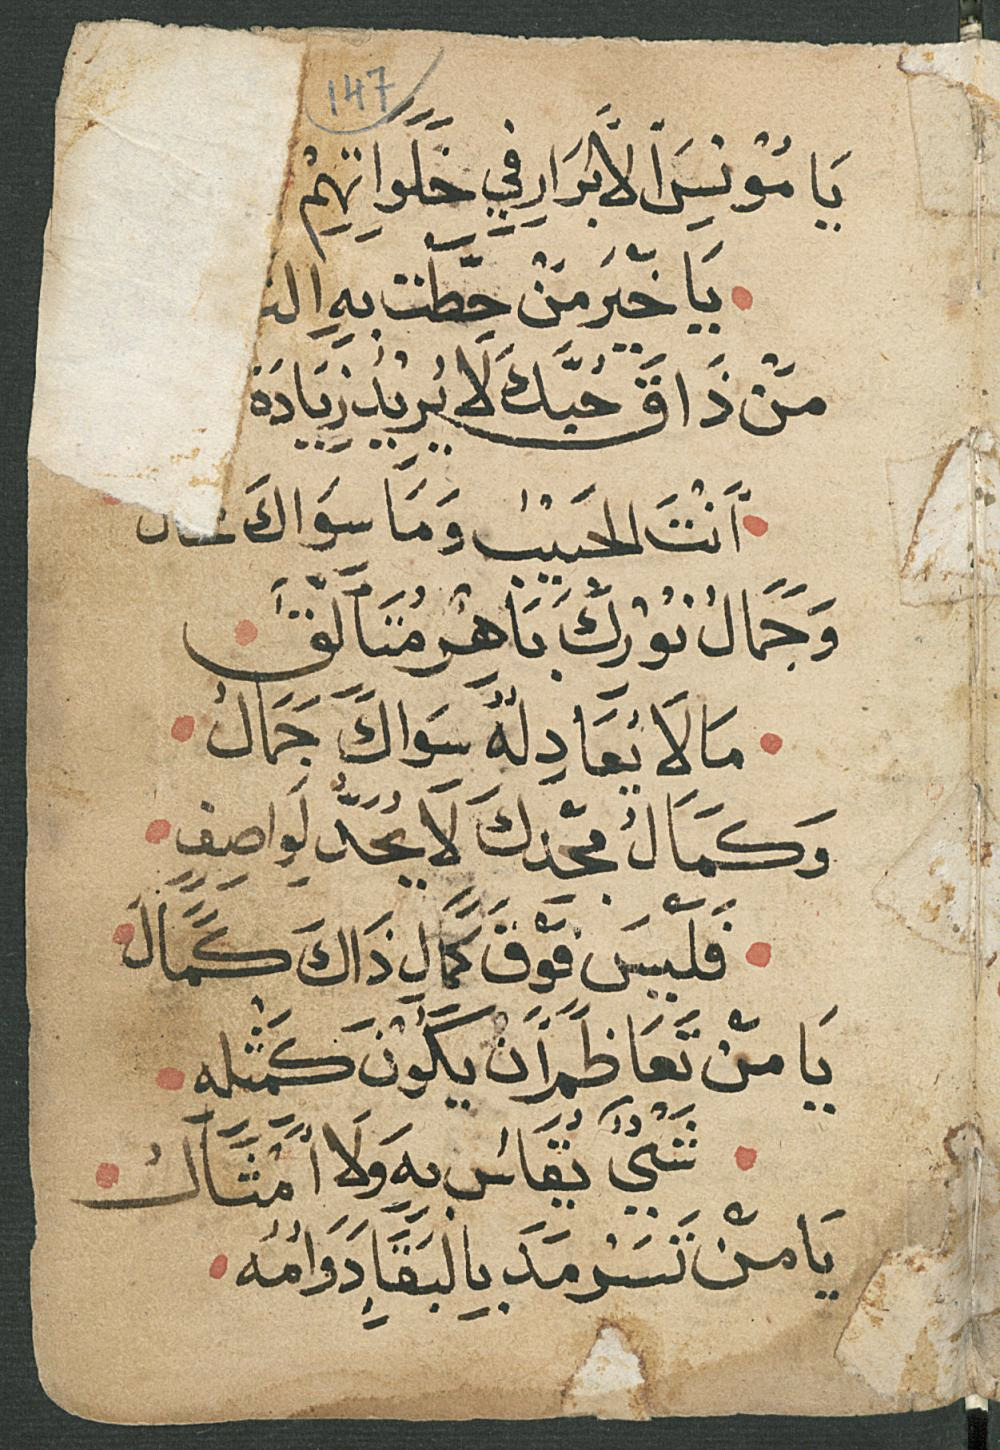 147
يَا مُوْنِسَ اْلأَبْرَارِ فِي خَلَوَاتِهِمْ
يَا خَيْرَ مَنْ حَطَّتْ بِهِ
مَنْ ذَاقَ حُبَّكَ لَا يُرِيْدُ زِيَادَةً
أَنْتَ الحَبِيْبُ وَمَا سِوَاكَ
وَجَمَالُ نُوْرِكَ بَاهِرٌ مُتَأَلِّقٌ
مَا لَا يُعَادِلُهُ سِوَاكَ جَمَالُ
وَكَمَالُ مَجْدِكَ لَا يُحَدُّ لِوَاصِفٍ
فَلَيْسَ فَوْقَ كَمَالِ ذَاكَ كَمَالُ
يَا مَنْ تَعَاظَمَ أَنْ يَكُوْنَ كَمَثْلِهِ
شَيْئٌ يُقَاسُ بِهِ وَلَا أَمْثَالُ
يَا مَنْ تَسَرْمَدَ بِالبَقَاءِ دَوَامُهُ